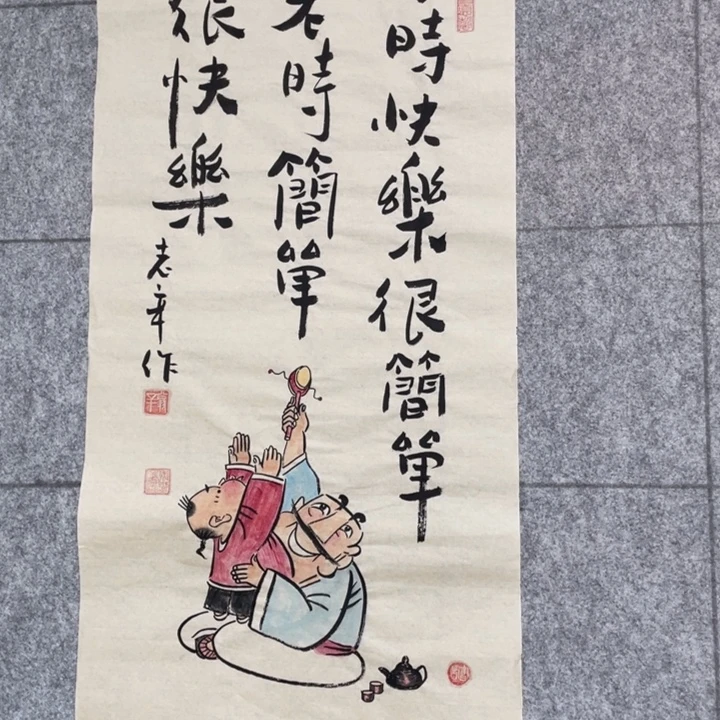 時快樂很簡單
老時簡單
很快樂
志 作